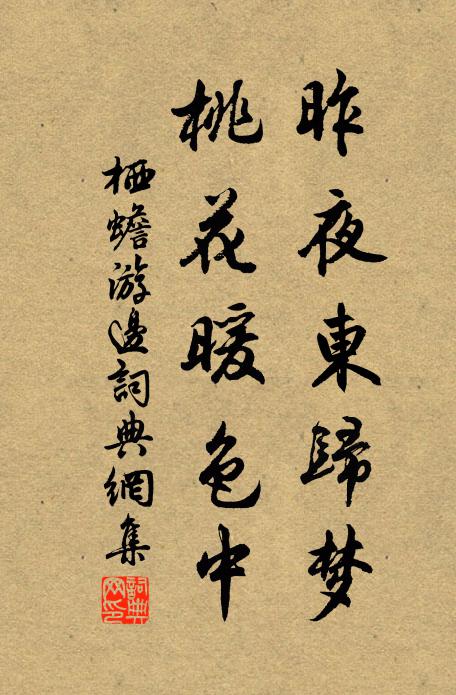 昨夜東歸梦
桃花暖色中
栖蟾游邊詞典網集
詞典网印